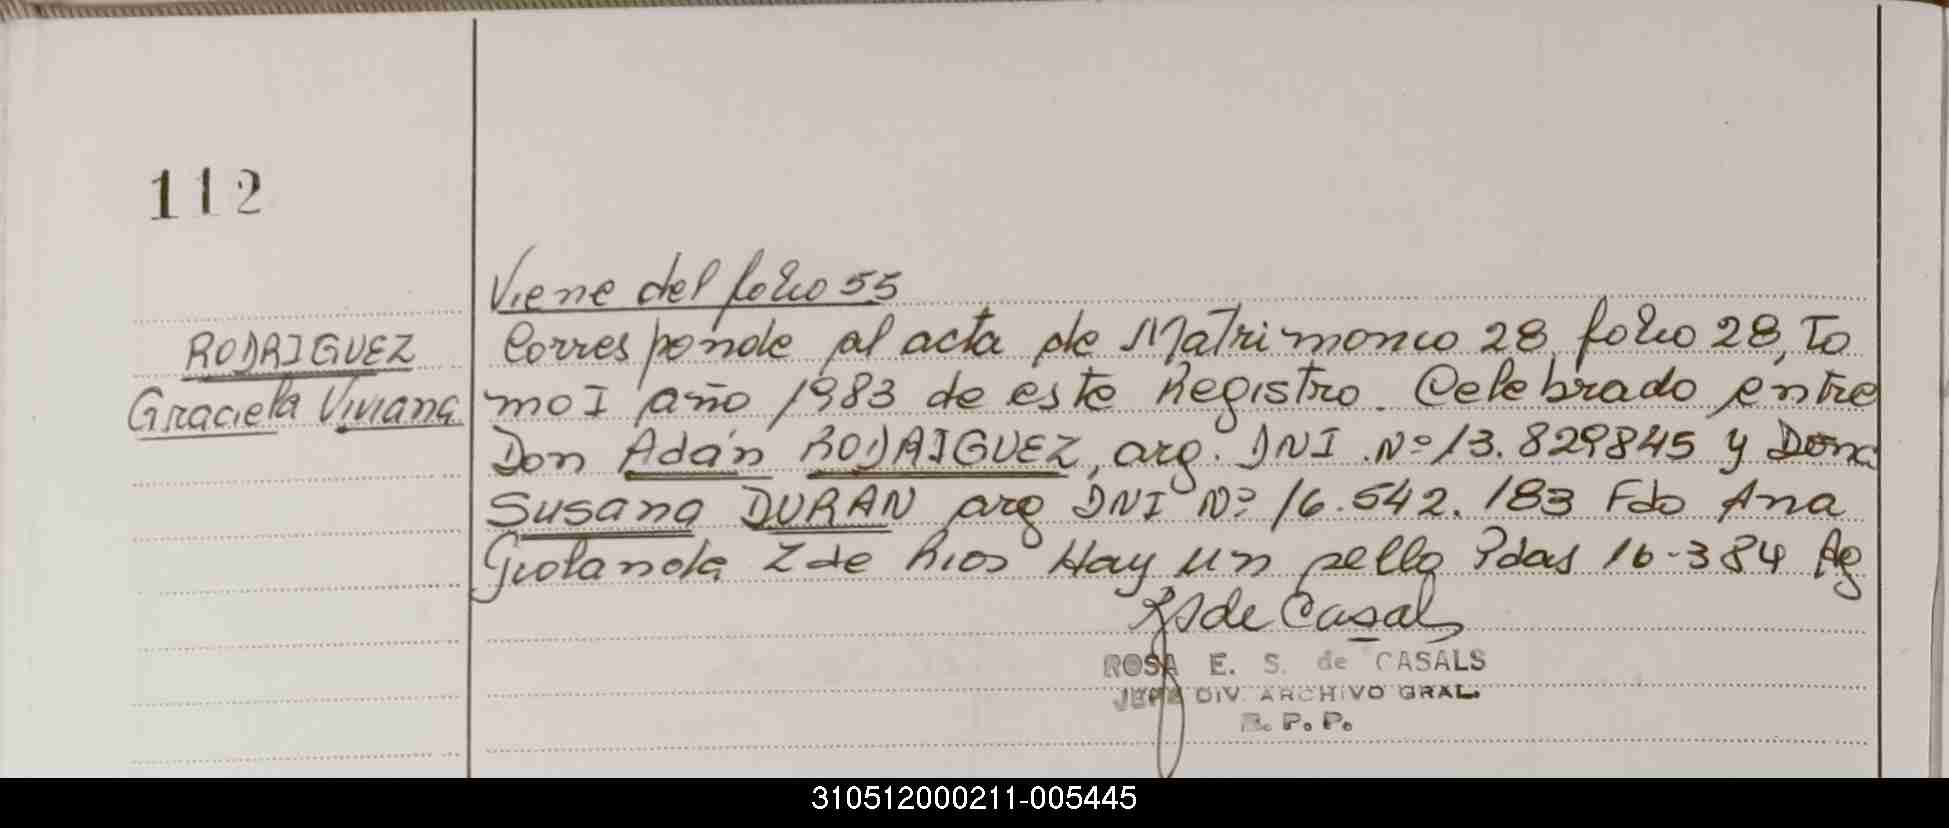 112
RODRIGUEZ
Graciela Viviana
Viene del folio 55
Corresponde al acta de Matrimonio 28, folio 28, To
mo I año 1983 de este Registro. Celebrado entre
Don Adán RODRIGUEZ, arg. DNI Nº 13.829845 y Doña
Susana DURAN arg DNI Nº 16.542.183 Fdo Ana
Giolanda Z de Rios Hay un sello Pdas 16-384 Ag
de Casals
ROSA E. S. de CASALS
JEFE DIV. ARCHIVO GRAL.
R. P. P.
310512000211-005445